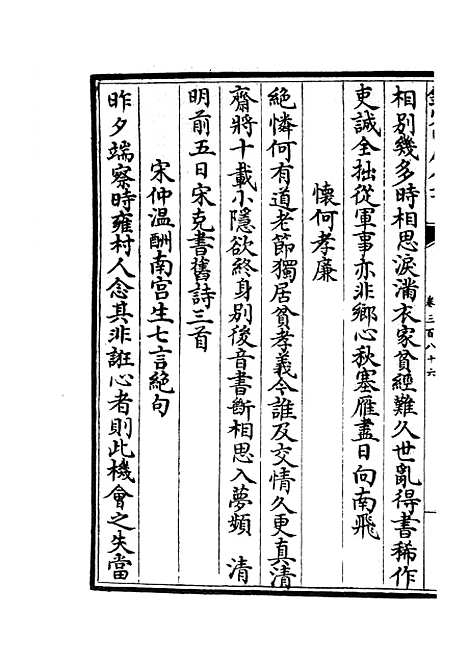 卷三百八十六
相别幾多時相思淚滿衣家貧經難久世亂得書稀作
吏誠全拙從軍事亦非鄉心秋塞雁盡日向南飛
懷何孝廉
絕憐何有道老節獨居貧孝義今誰及交情久更真清
齋將十載小隱欲終身别後音書斷相思入夢頻　清
明前五日宋克書舊詩三首
宋仲溫酬南宫生七言絕句
昨夕端察時雍村人念其非誑心者則此機會之失當